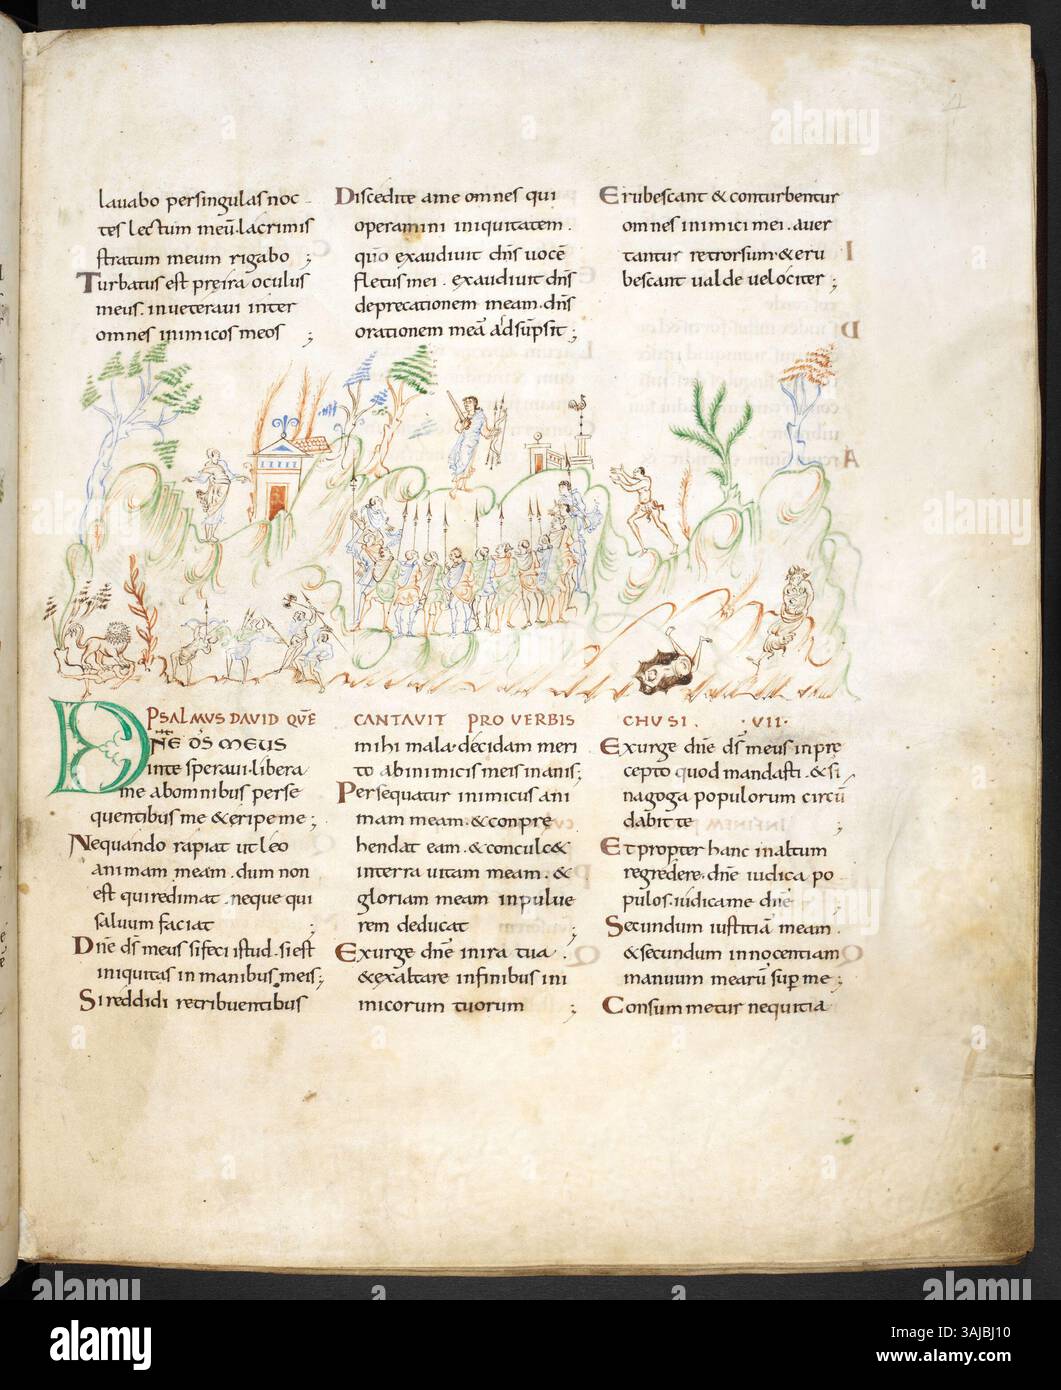 lavabo per singulas noc
tes lectum meū. lacrimis
stratum meum rigabo ;
Turbatus est p̄ e ira oculus
meus. inueteraui inter
omnes inimicos meos ;
Discedite a me omnes qui
operamini iniquitatem.
quō exaudiuit dn̄s uocē
fletus mei. exaudiuit dn̄s
deprecationem meam. dn̄s
orationem meā adsūpsit ;
Erubescant & conturbentur
omnes inimici mei. auer
tantur retrorsum. & eru
bescant ualde uelociter ;
PSALMUS DAVID QUĒ CANTAVIT PRO VERBIS CHUSI . VII.
DN̄E D̄S MEUS
in te speraui. libera
me ab omnibus perse
quentibus me & eripe me ;
Nequando rapiat ut leo
animam meam. dum non
est qui redimat. neque qui
saluum faciat ;
Dn̄e d̄s meus si feci istud. si est
iniquitas in manibus meis ;
Si reddidi retribuentibus
mihi mala. decidam meri
to ab inimicis meis inanis ;
Persequatur inimicus ani
mam meam. & conpre
hendat eam. & conculc&
in terra uitam meam. &
gloriam meam in pulue
rem deducat ;
Exurge dn̄e in ira tua .
& exaltare in finibus ini
micorum tuorum ;
Exurge dn̄e d̄s meus in pre
cepto quod mandasti. & si
nagoga populorum circū
dabit te ;
Et propter hanc in altum
regredere. dn̄e iudica po
pulos. iudica me dn̄e
Secundum iustitiā meam.
& secundum innocentiam
manuum mearū sup̄ me ;
Consummetur nequitia
alamy
Image ID: 3AJBJ10
www.alamy.com